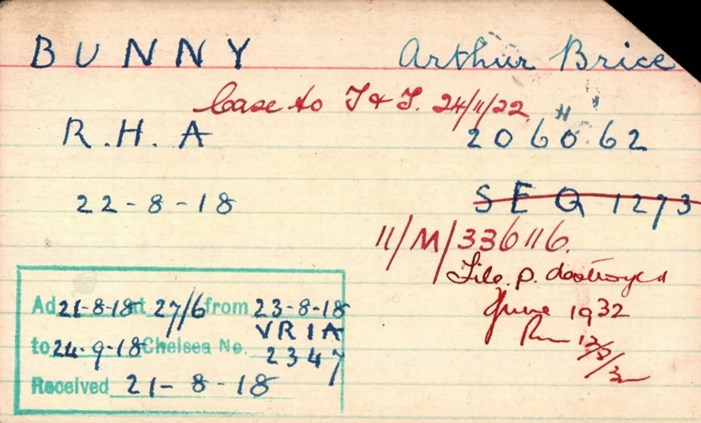 BUNNY Arthur Brice
Case to T & F. 24/11/22
R.H.A 206062
22-8-18 SEQ 1273
11/M/336116.
File. P. destroyed
June 1932
Ad 21-8-18 at 27/6 from 23-8-18
to 24-9-18 Chelsea No. VRIA 2347
Received 21-8-18